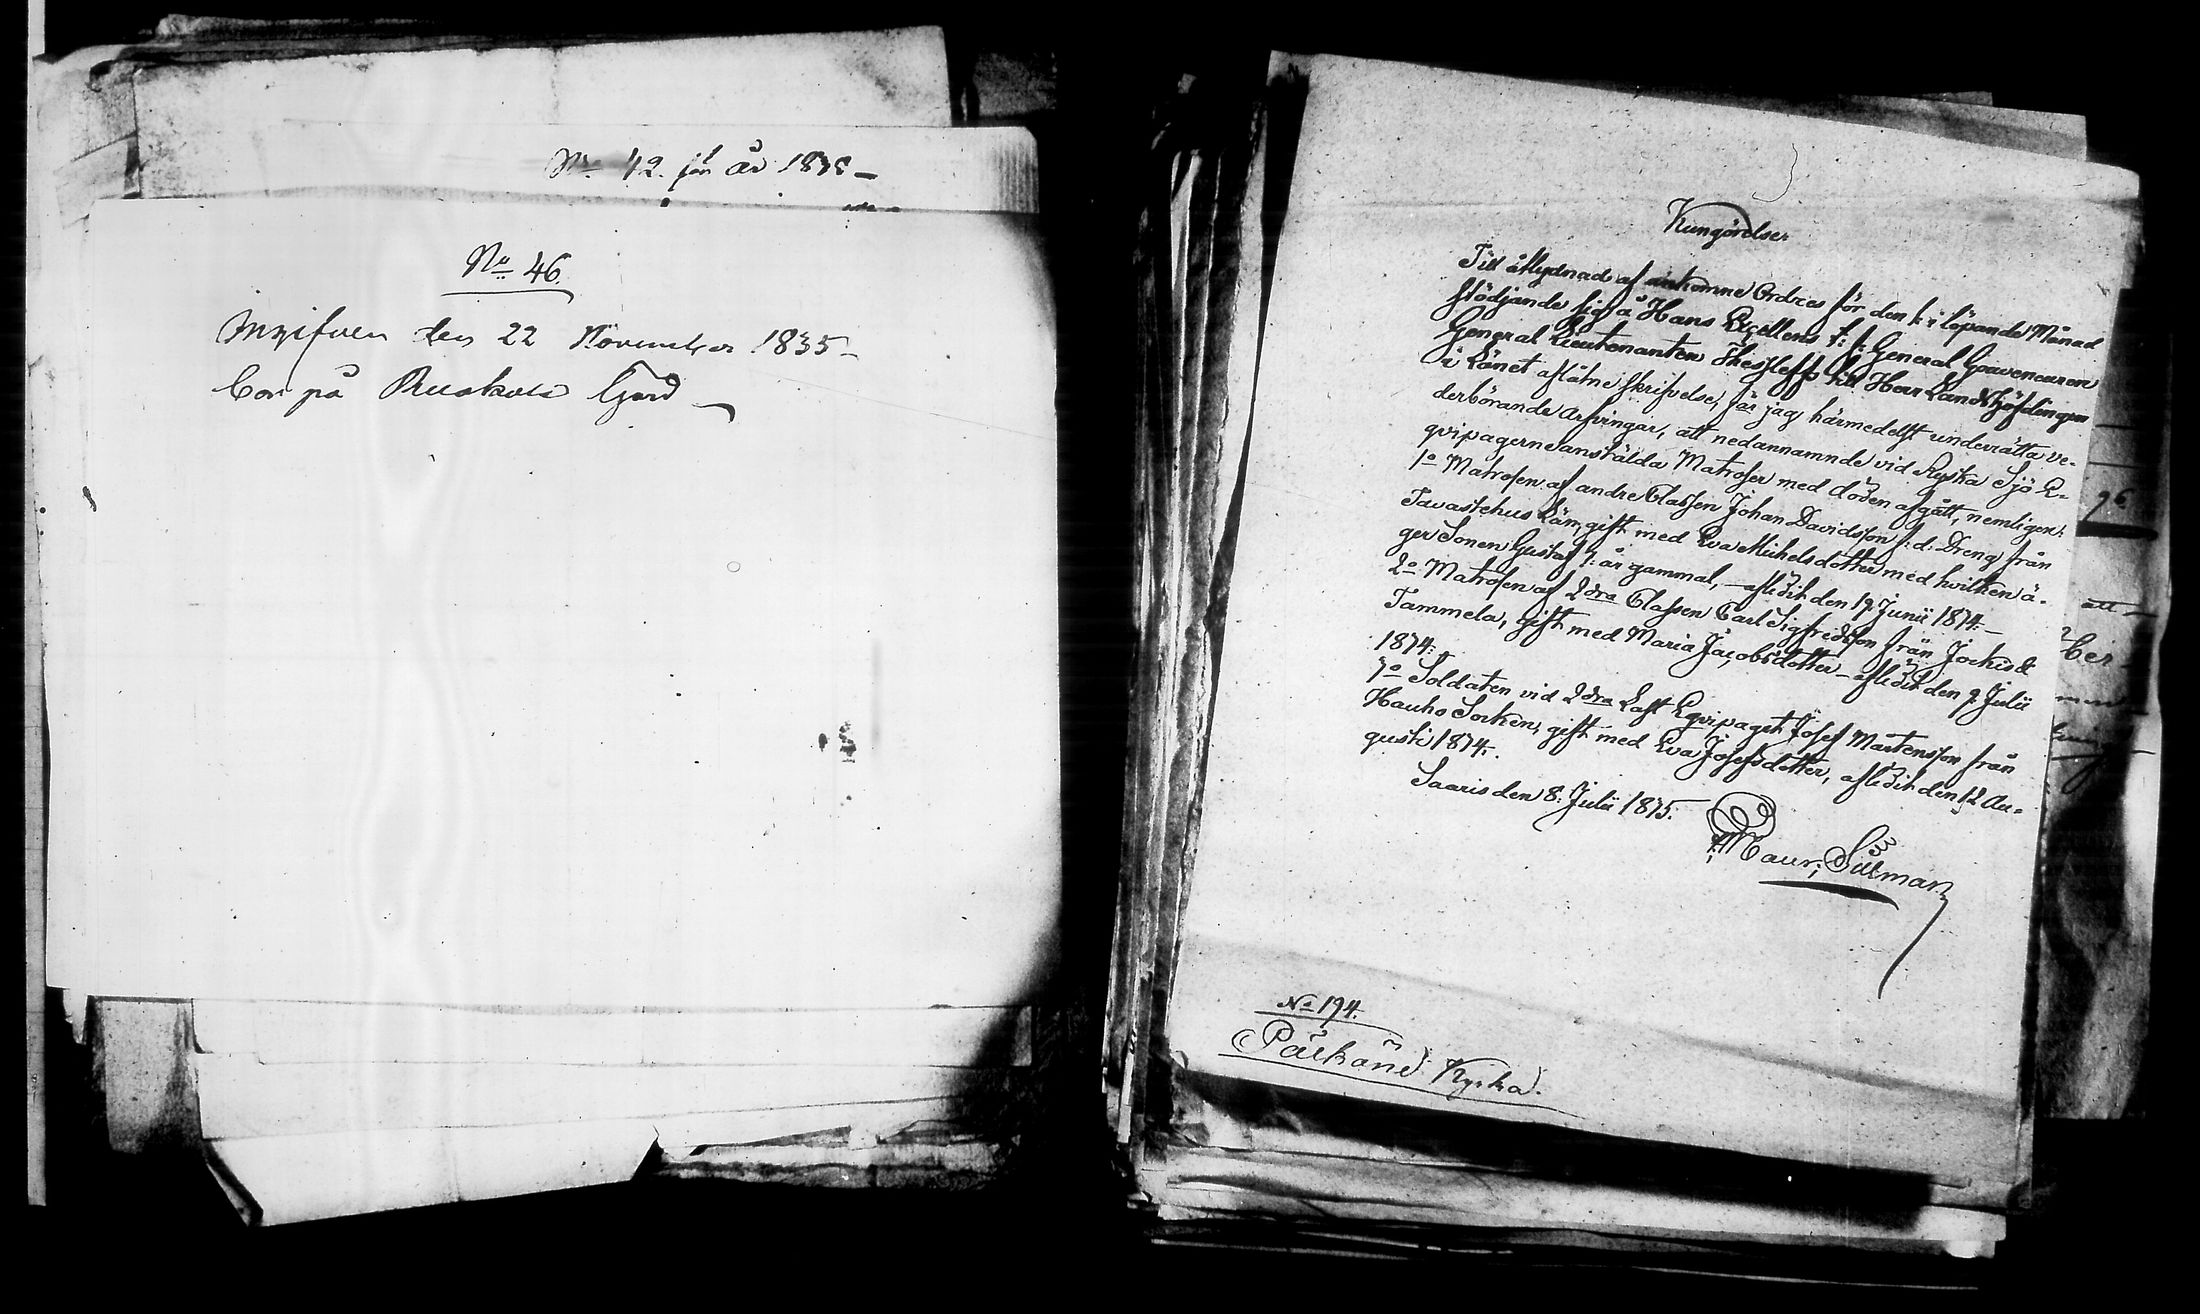 No 42. för år 1838 –
No 46.
Ingifven den 22 November 1835 –
Cor på Ruskola Gård –
Kungörelser
Till åtlydnad af ankomne Ordres för den 1: i löpande Månad
stödjande sig å Hans Excellens t: f: General Gouverneuren
General Lieutenanten Thesleffs till Herr Landshöfdingen
i Länet aflåtne skrifvelse, får jag härmedelst underrätta ve-
derbörande Arfvingar, att nedannamnde vid Ryska Sjö E-
qvipagerne anstälda Matroser med döden afgått, nemligen:
1o Matrosen af andre Classen Johan Davidsson f: d: Dreng från
Tavastehus Län, gift med Eva Michelsdotter med hvilken ä-
ger Sonen Gustaf 7: år gammal, – afledit den 19 Junii 1834: –
2o Matrosen af 2dra Classen Carl Sigfredsson från Jockis &
Tammela, gift med Maria Jacobsdotter – afledit den 9 Julii
1834:
3o Soldaten vid 2dra Last Eqvipaget Josef Mårtensson från
Hauho Socken, gift med Eva Josefsdotter, afledit den 12 Au-
gusti 1834:.
Saaris den 8: Julii 1835.
Maur: Silfman
No 194.
Pälkäne Kyrka.
96
att